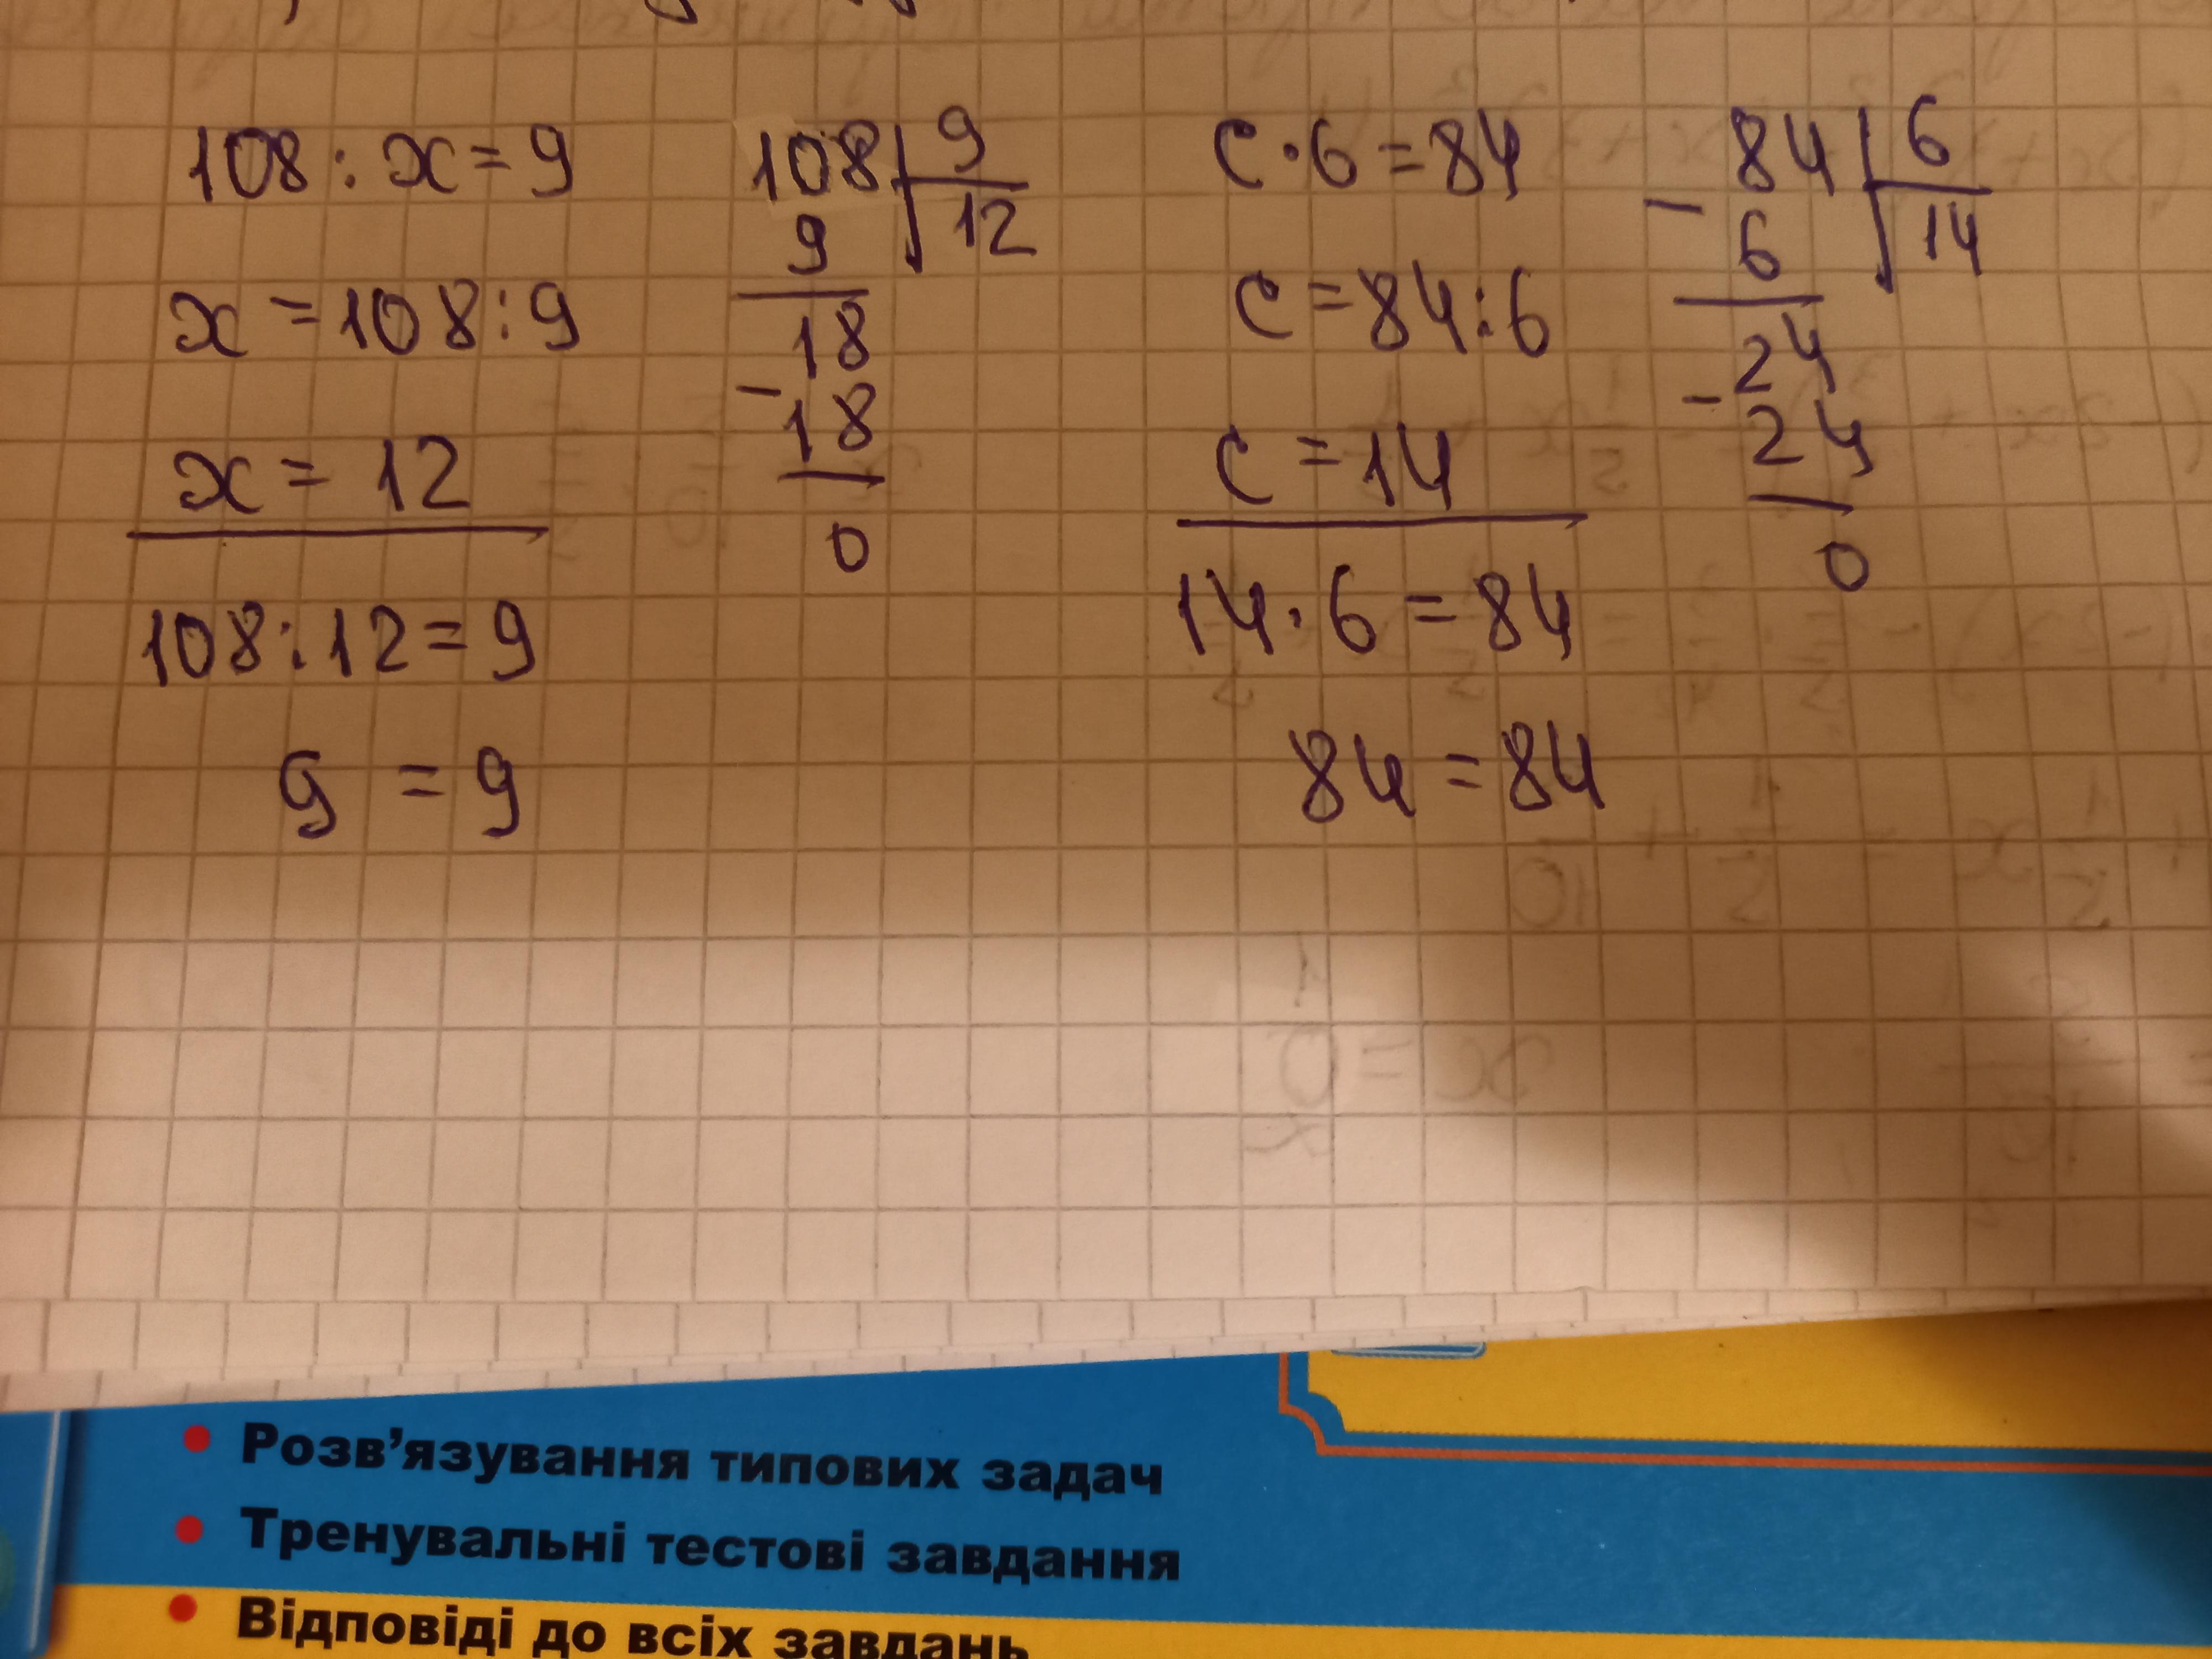 108 : x = 9
x = 108 : 9
x = 12
108 : 12 = 9
9 = 9
108 | 9
9 | 12
18
- 18
0
c · 6 = 84
c = 84 : 6
c = 14
14 · 6 = 84
84 = 84
84 | 6
- 6 | 14
24
- 24
0
• Розв’язування типових задач
• Тренувальні тестові завдання
• Відповіді до всіх завдань